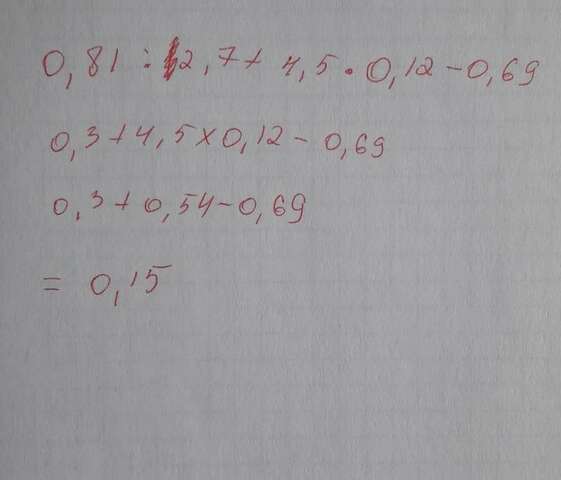 0,81 : 2,7 + 4,5 · 0,12 - 0,69
0,3 + 4,5 × 0,12 - 0,69
0,3 + 0,54 - 0,69
= 0,15